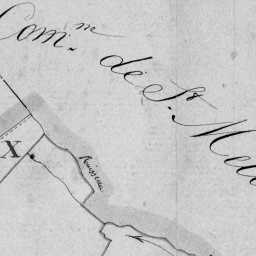 Com.ne de St. Med
X
Ruisseau